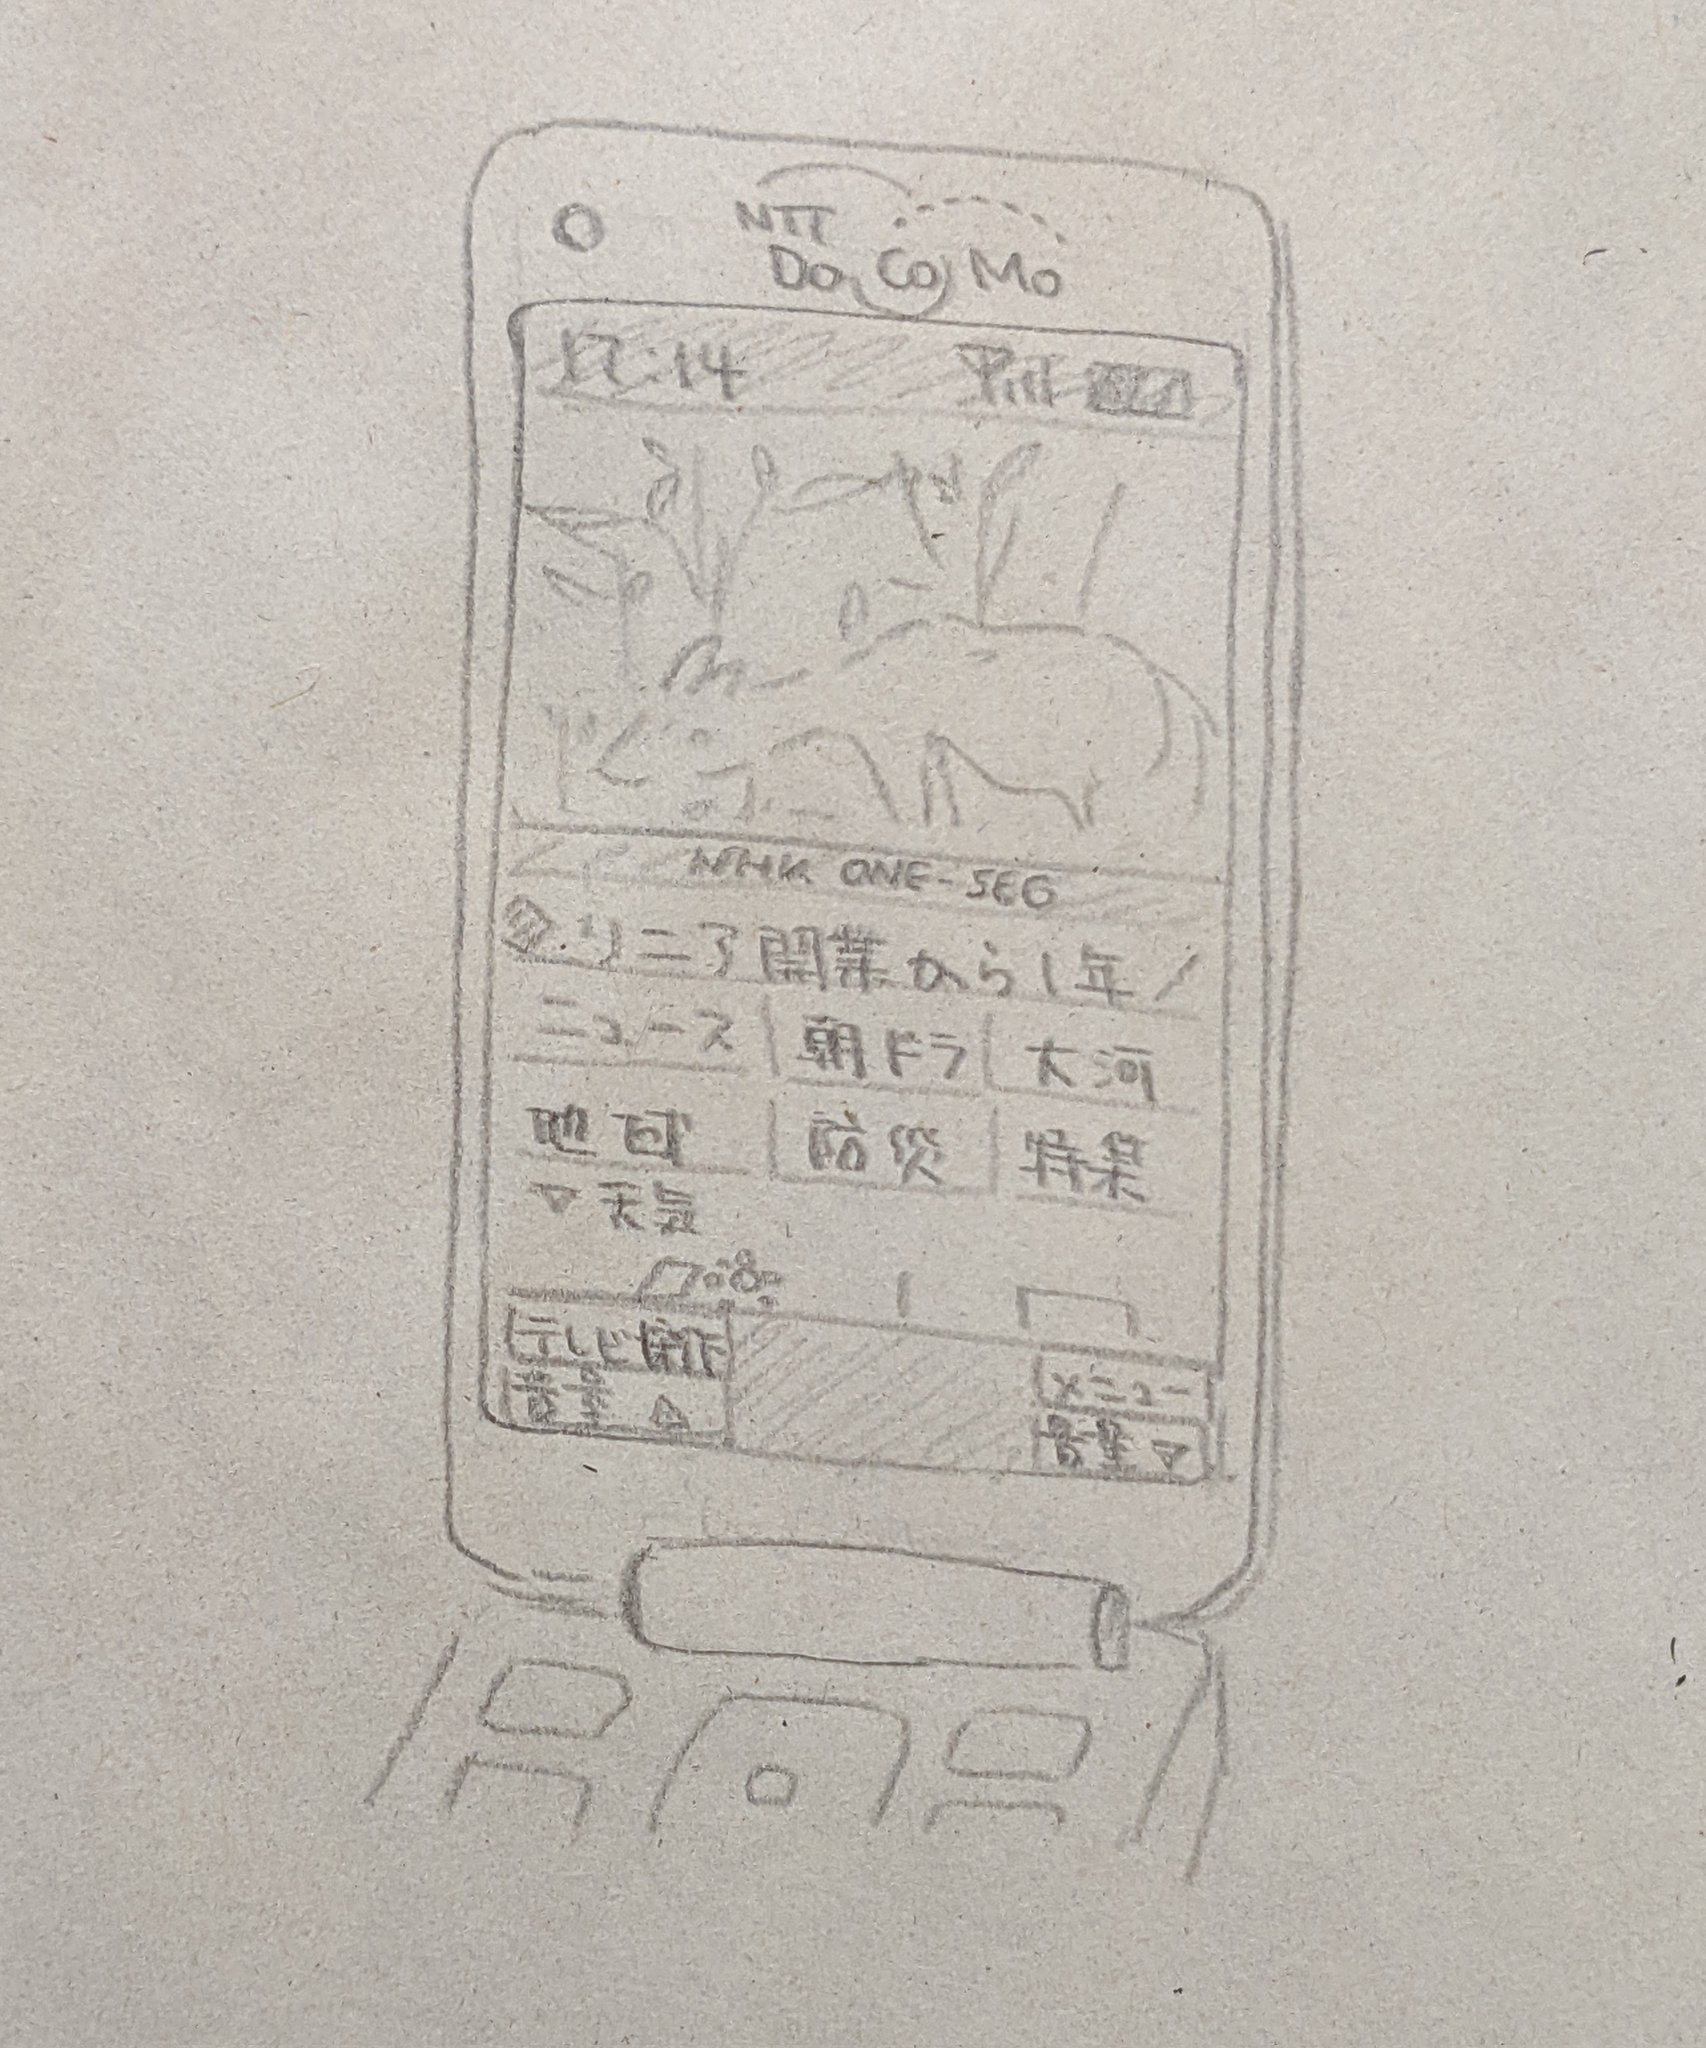 NTT
DoCoMo
17:14
NHK ONE-SEG
リニア開業から1年
ニュース 朝ドラ 大河
地域 防災 特集
▽天気
テレビ操作 メニュー
音量 △ 音量 ▽